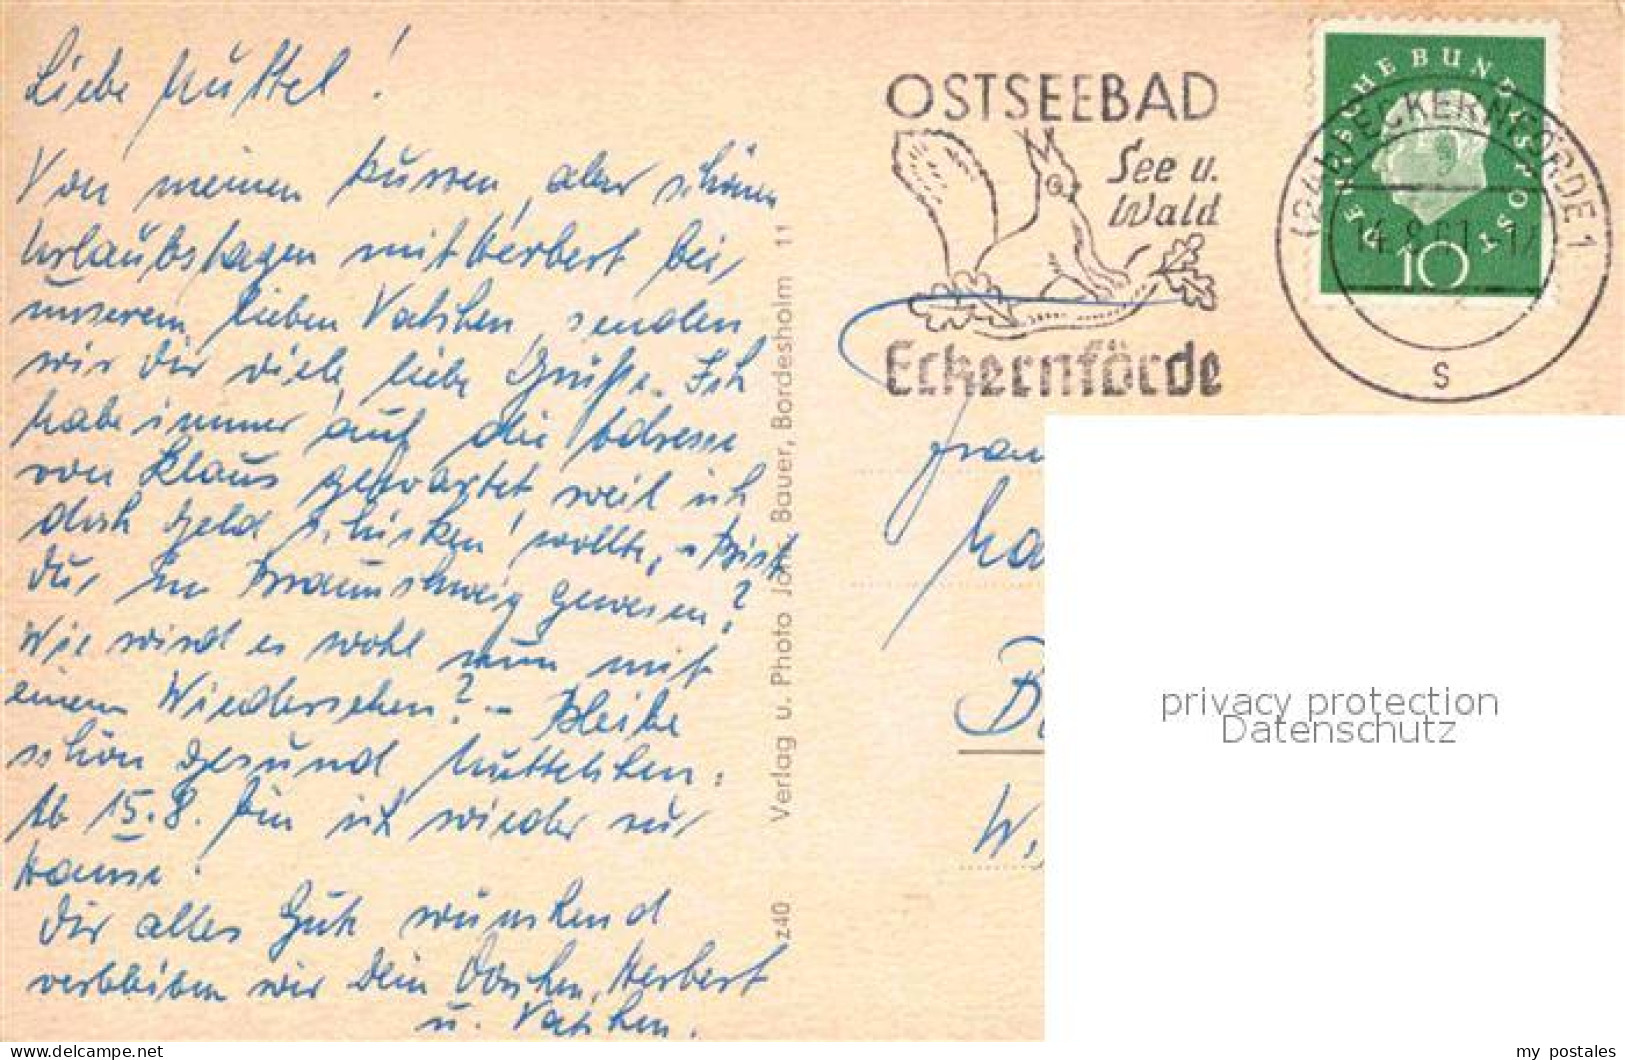 Liebe Muttel!
Von meinen kurzen, aber schönen
Urlaubstagen mit Herbert bei
unserem lieben Vatchen, senden
wir Dir viele, liebe Grüße. Ich
habe immer auf die Adresse
von Klaus gewartet, weil ich
doch Geld schicken wollte. – Bist
Du in Braunschweig gewesen?
Wie wird es wohl nun mit
einem Wiedersehen? – Bleibe
schön gesund Muttelchen.
Ab 15.8. bin ich wieder zu
Hause.
Dir alles Gute wünschend
verbleiben wir Dein Herbert
u. Vatchen.
Verlag u. Photo Joh. Bauer, Bordesholm 11
z40
OSTSEEBAD
See u.
Wald
Eckernförde
DEUTSCHE BUNDESPOST
10
(24b) ECKERNFÖRDE 1
14.8.61
s
Frau
privacy protection
Datenschutz
www.delcampe.net
my_postales